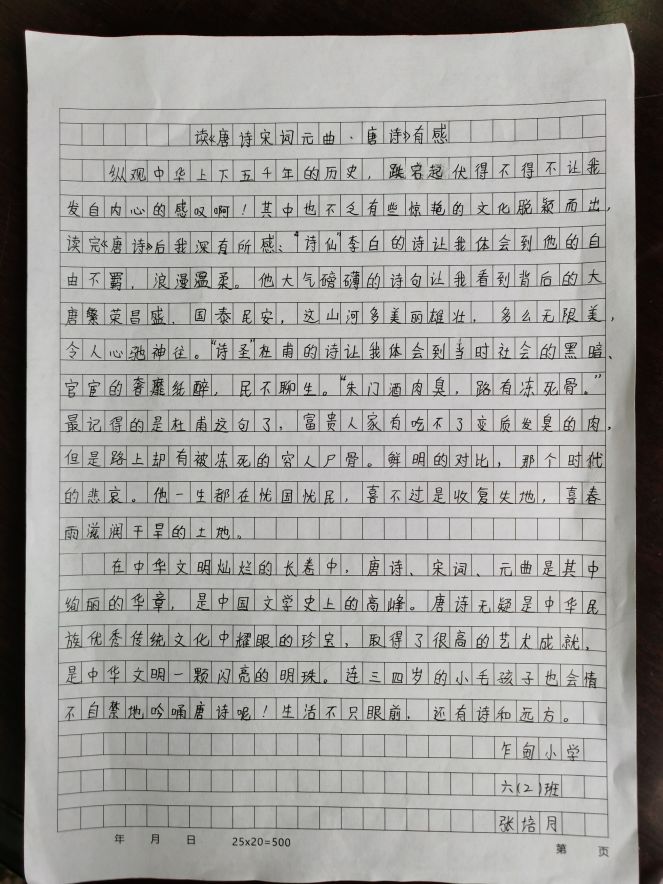 读《唐诗宋词元曲·唐诗》有感
纵观中华上下五千年的历史，跌宕起伏得不得不让我
发自内心的感叹啊！其中也不乏有些惊艳的文化脱颖而出，
读完《唐诗》后我深有所感、“诗仙”李白的诗让我体会到他的自
由不羁，浪漫温柔。他大气磅礴的诗句让我看到背后的大
唐繁荣昌盛、国泰民安，这山河多美丽雄壮，多么无限美，
令人心驰神往。“诗圣”杜甫的诗让我体会到当时社会的黑暗、
官宦的奢靡纸醉，民不聊生。“朱门酒肉臭，路有冻死骨。”
最记得的是杜甫这句了，富贵人家有吃不了变质发臭的肉，
但是路上却有被冻死的穷人尸骨。鲜明的对比，那个时代
的悲哀。他一生都在忧国忧民，喜不过是收复失地，喜春
雨滋润干旱的土地。
在中华文明灿烂的长卷中，唐诗、宋词、元曲是其中
绚丽的华章，是中国文学史上的高峰。唐诗无疑是中华民
族优秀传统文化中耀眼的珍宝，取得了很高的艺术成就，
是中华文明一颗闪亮的明珠。连三四岁的小毛孩子也会情
不自禁地吟诵唐诗呢！生活不只眼前，还有诗和远方。
乍甸小学
六（2）班
张培月
年 月 日 25x20=500 第 页